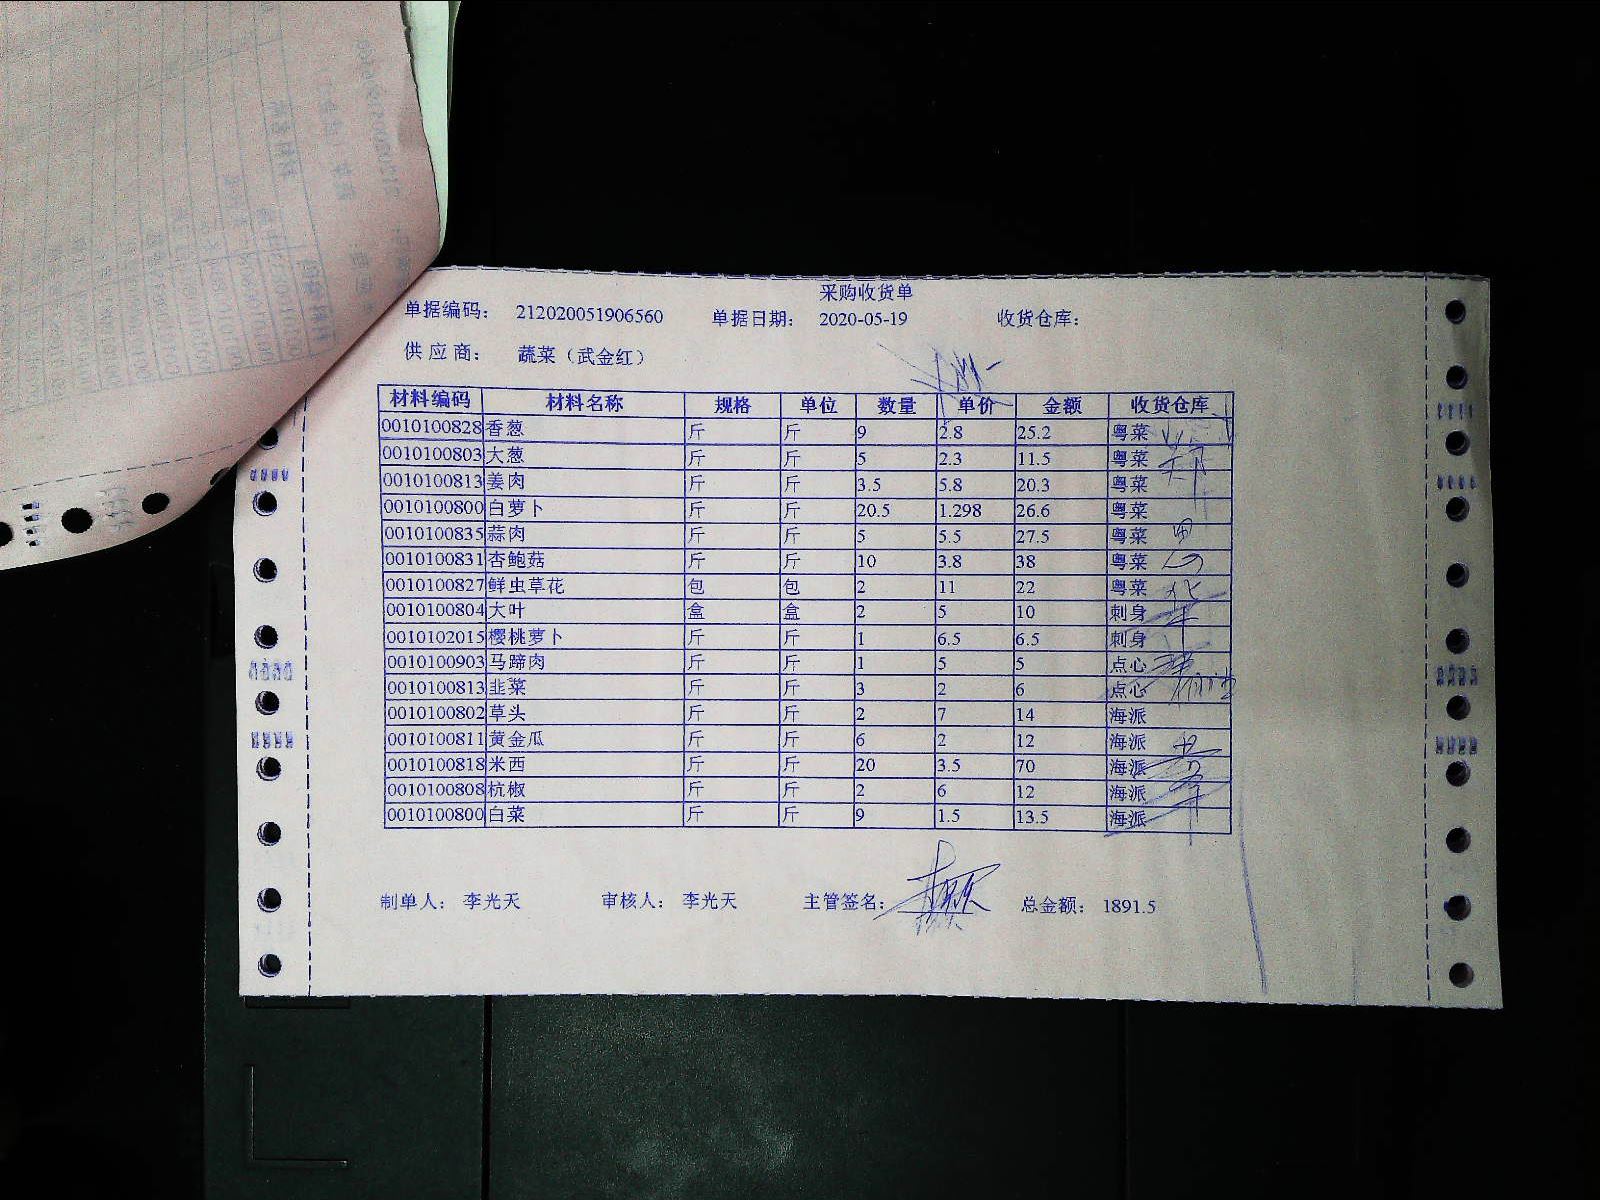 采购收货单
单据编码： 212020051906560 单据日期： 2020-05-19 收货仓库：
供应商： 蔬菜（武金红）
材料编码 材料名称 规格 单位 数量 单价 金额 收货仓库
0010100828 香葱 斤 斤 9 2.8 25.2 粤菜
0010100803 大葱 斤 斤 5 2.3 11.5 粤菜
0010100813 姜肉 斤 斤 3.5 5.8 20.3 粤菜
0010100800 白萝卜 斤 斤 20.5 1.298 26.6 粤菜
0010100835 蒜肉 斤 斤 5 5.5 27.5 粤菜
0010100831 杏鲍菇 斤 斤 10 3.8 38 粤菜
0010100827 鲜虫草花 包 包 2 11 22 粤菜
0010100804 大叶 盒 盒 2 5 10 刺身
0010102015 樱桃萝卜 斤 斤 1 6.5 6.5 刺身
0010100903 马蹄肉 斤 斤 1 5 5 点心
0010100813 韭菜 斤 斤 3 2 6 点心
0010100802 草头 斤 斤 2 7 14 海派
0010100811 黄金瓜 斤 斤 6 2 12 海派
0010100818 米西 斤 斤 20 3.5 70 海派
0010100808 杭椒 斤 斤 2 6 12 海派
0010100800 白菜 斤 斤 9 1.5 13.5 海派
制单人： 李光天 审核人： 李光天 主管签名： 总金额： 1891.5